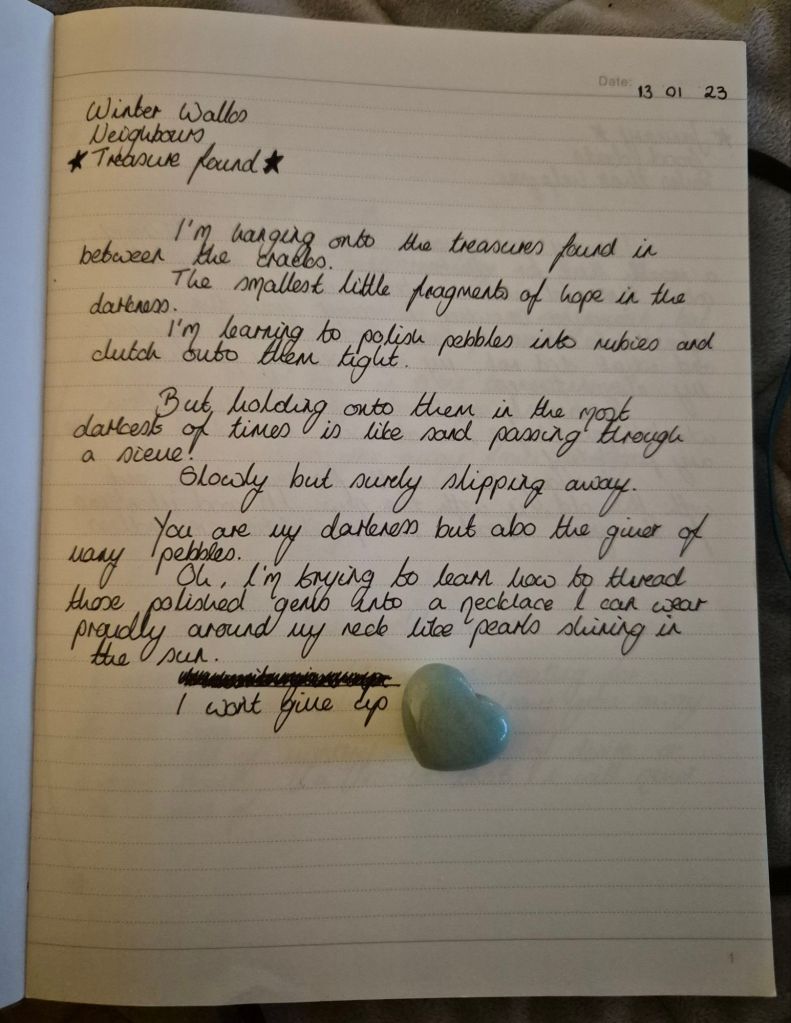 Date: 13 01 23
Winter Walks
Neighbours
★ Treasure found ★
I'm hanging onto the treasures found in
between the cracks.
The smallest little fragments of hope in the
darkness.
I'm learning to polish pebbles into rubies and
clutch onto them tight.
But holding onto them in the most
darkest of times is like sand passing through
a sieve.
Slowly but surely slipping away.
You are my darkness but also the giver of
many pebbles.
Oh, I'm trying to learn how to thread
those polished gems into a necklace I can wear
proudly around my neck like pearls shining in
the sun.
I wont give up
1